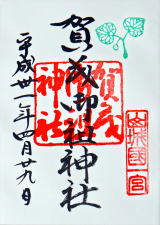 山城國一宮
賀茂御祖神社
賀茂
神社
平成卅一年四月廿九日